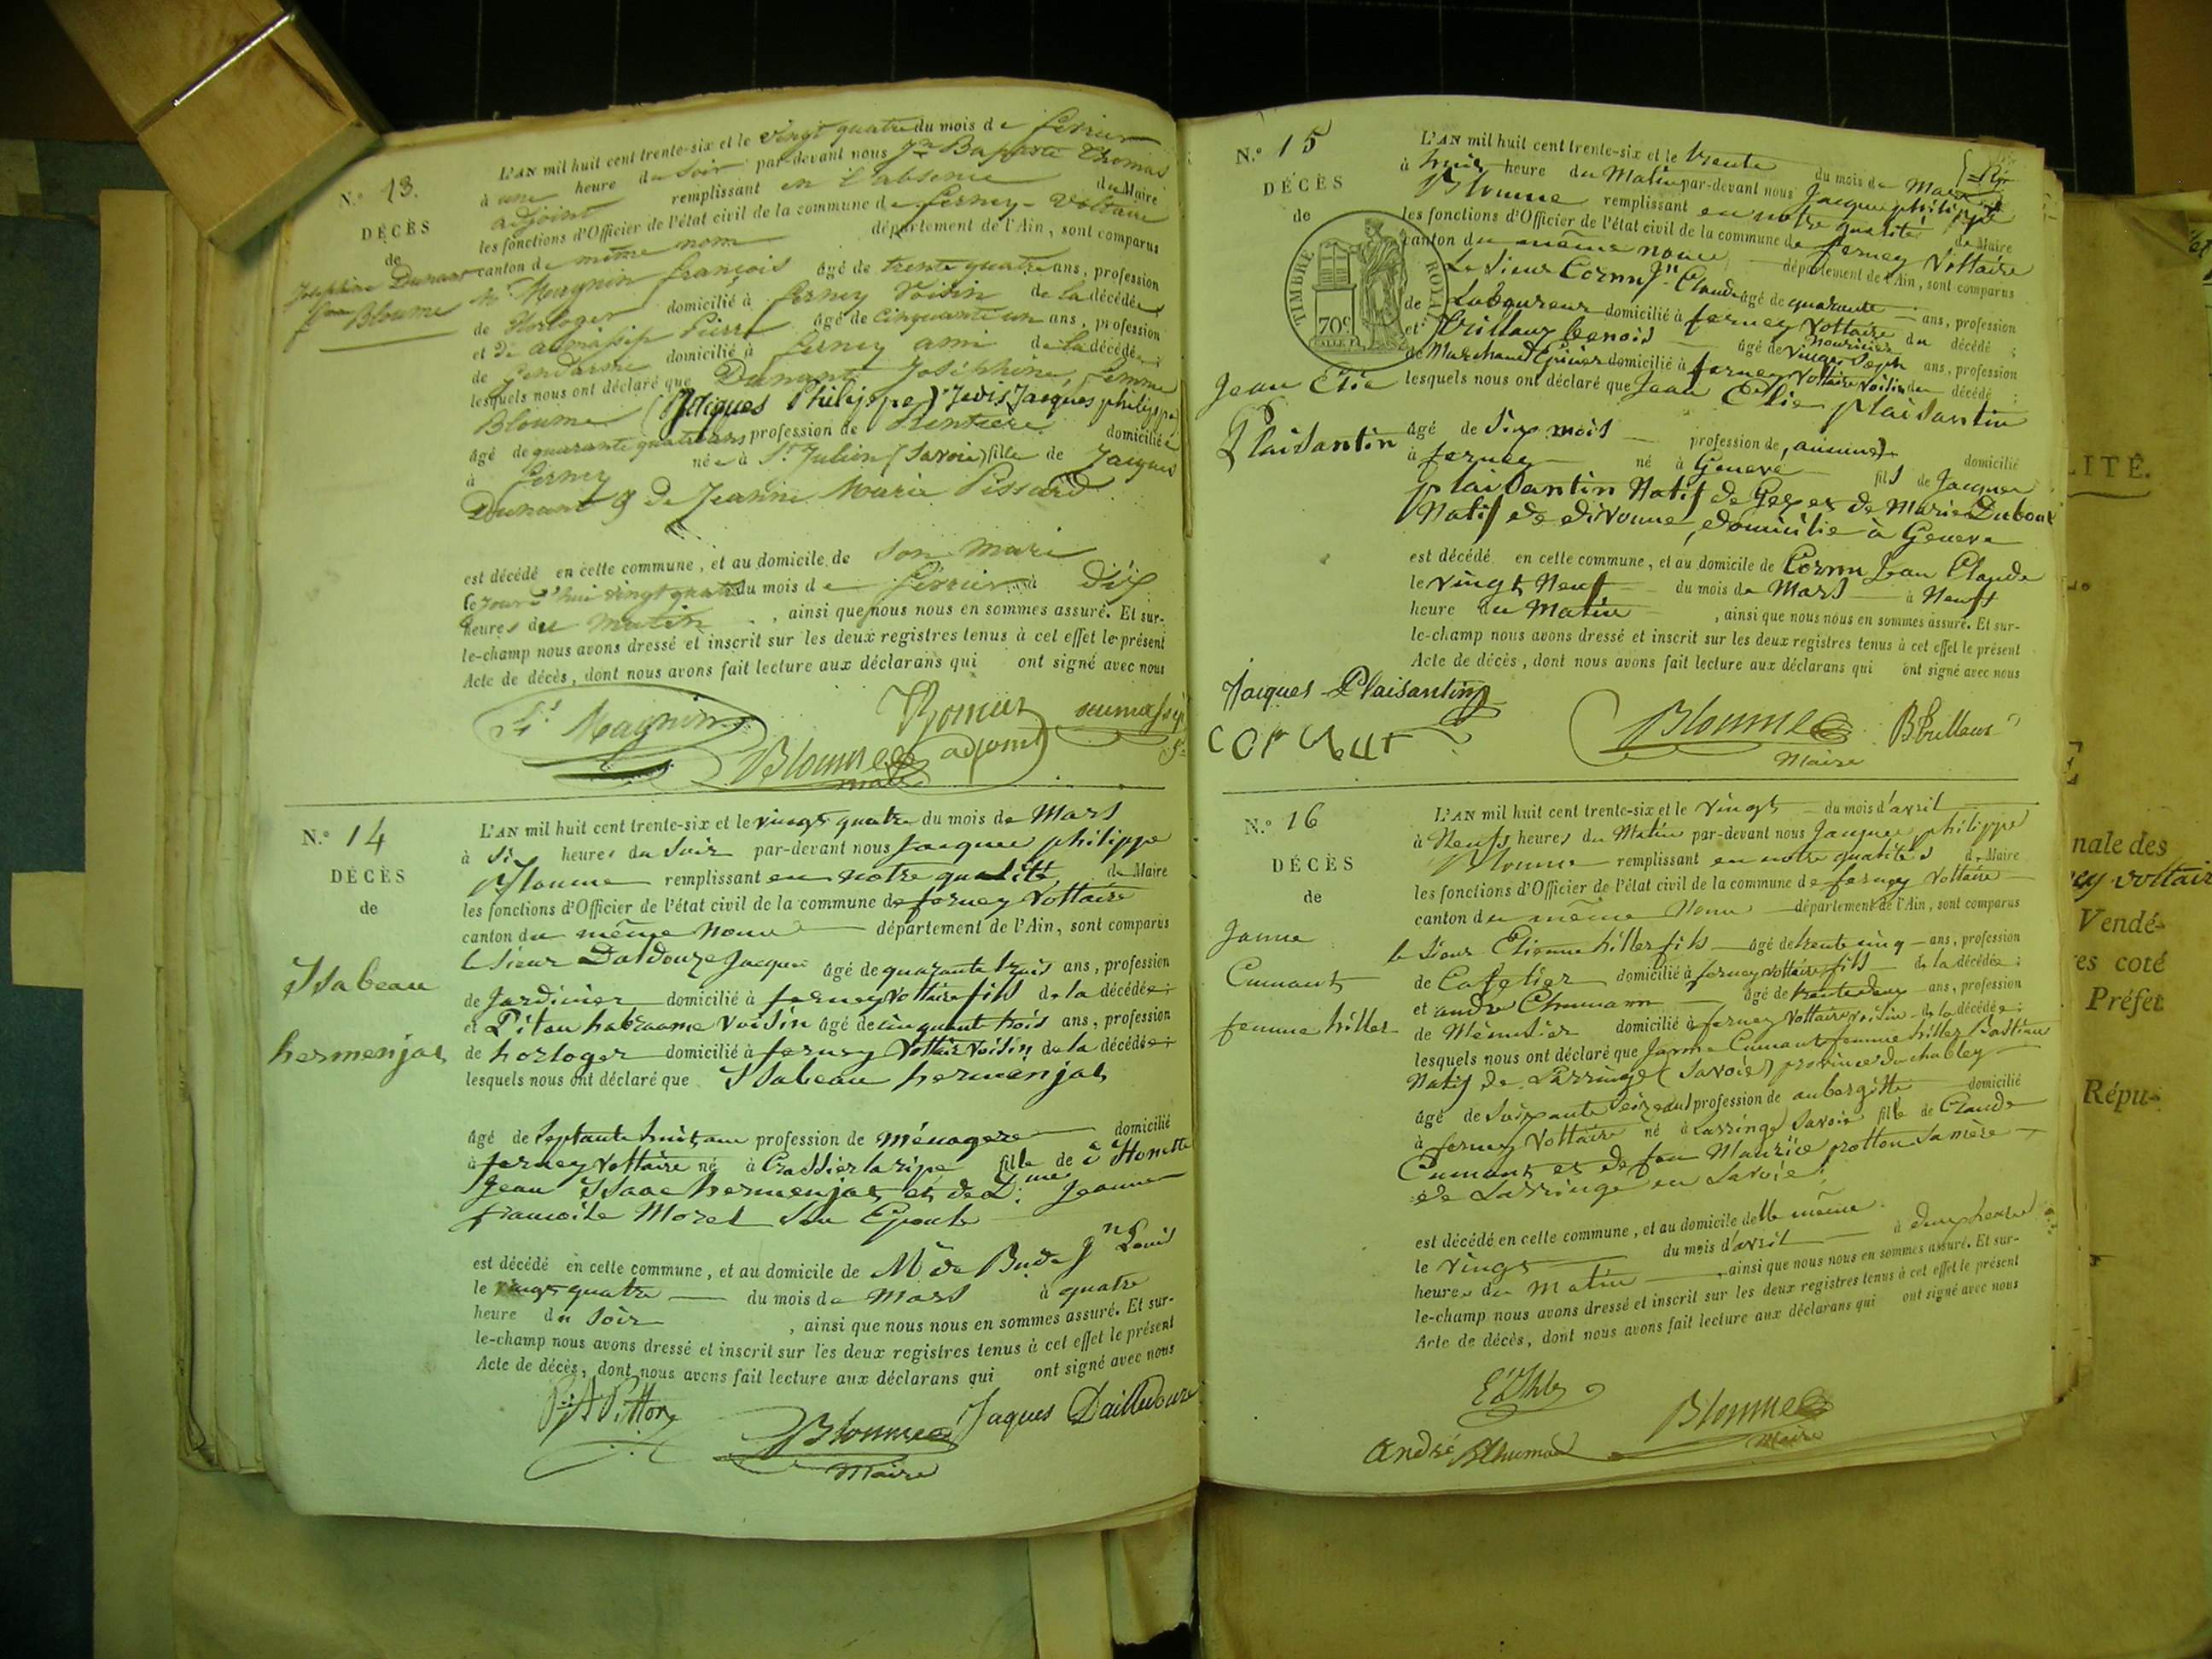 N.º 13.
DÉCÈS
de
Joséphine Dunant
fme Bloume
L'AN mil huit cent trente-six et le vingt quatre du mois de février
à une heure du Soir par-devant nous Jn Baptiste Thomas
adjoint remplissant en l'absence du Maire
les fonctions d'Officier de l'état civil de la commune de ferney-Voltaire
canton de même nom département de l'Ain, sont comparus
Magnin françois âgé de trente quatre ans, profession
de Horloger domicilié à ferney Voisin de la décédée
et de Pierre âgé de Cinquante un ans, profession
de Gendarme domicilié à ferney ami de la décédée;
lesquels nous ont déclaré que Dunant Joséphine, femme
Bloume (Jacques Philippe)
âgé de quarante quatre ans profession de Rentière domiciliée
à ferney née à St Julien (Savoie) fille de Jacques
Dunant & de Jeanne Marie Pissard
est décédé en cette commune, et au domicile de son mari
le jourd'hui vingt quatre du mois de février à Dix
heures du matin, ainsi que nous nous en sommes assuré. Et sur-
le-champ nous avons dressé et inscrit sur les deux registres tenus à cet effet le présent
Acte de décès, dont nous avons fait lecture aux déclarans qui ont signé avec nous
Fs Magnin
Bloume
maire
adjoint
N.º 14
DÉCÈS
de
Isabeau
hermenjat
L'AN mil huit cent trente-six et le vingt quatre du mois de Mars
à Six heures du Soir par-devant nous Jacques philippe
Bloume remplissant en notre qualité de Maire
les fonctions d'Officier de l'état civil de la commune de ferney Voltaire
canton du même nom département de l'Ain, sont comparus
le Sieur Daldouze Jacques âgé de quarante trois ans, profession
de Jardinier domicilié à ferney Voltaire fils de la décédée;
et Piton habraame voisin âgé de cinquante trois ans, profession
de horloger domicilié à ferney Voltaire Voisin de la décédée;
lesquels nous ont déclaré que Isabeau hermenjat
âgé de Septante huit ans profession de Ménagere domicilié
à ferney Voltaire né à Crassier la ripe fille de Honette
Jean Isaac hermenjat et de Dme Jeanne
francoise Morel Son Epouse
est décédé en cette commune, et au domicile de Mr de Budé Jn Louis
le vingt quatre du mois de Mars à quatre
heure du Soir, ainsi que nous nous en sommes assuré. Et sur-
le-champ nous avons dressé et inscrit sur les deux registres tenus à cet effet le présent
Acte de décès, dont nous avons fait lecture aux déclarans qui ont signé avec nous
Bloume
Maire
Jaques Dailledouze
N.º 15
DÉCÈS
de
TIMBRE ROYAL
70c
Jean Élie
Plaisantin
L'AN mil huit cent trente-six et le trente du mois de Mars
à huit heure du Matin par-devant nous Jacques philippe
Bloume remplissant en notre qualité de Maire
les fonctions d'Officier de l'état civil de la commune de ferney Voltaire
canton du même nom département de l'Ain, sont comparus
Le Sieur Cornu Jn Claude âgé de quarante ans, profession
de Laboureur domicilié à ferney Voltaire nouricier du décédé;
et benois âgé de vingt Sept ans, profession
de Marchand Epicier domicilié à ferney Voltaire voisin du décédé;
lesquels nous ont déclaré que Jean Elie plaisantin
âgé de Six mois profession de domicilié
à ferney né à Geneve fils de Jacques
plaisantin Natif de Gex et de Marie Dubout
Natif de divonne, domicilie à Geneve
est décédé en cette commune, et au domicile de Cornu Jean Claude
le vingt Neuf du mois de Mars à Neuf
heure du Matin, ainsi que nous nous en sommes assuré. Et sur-
le-champ nous avons dressé et inscrit sur les deux registres tenus à cet effet le présent
Acte de décès, dont nous avons fait lecture aux déclarans qui ont signé avec nous
Jacques Plaisantin
Bloume
Maire
N.º 16
DÉCÈS
de
Janne
Cumant
femme hiller
L'AN mil huit cent trente-six et le vingt du mois d'avril
à Neuf heures du Matin par-devant nous Jacques philippe
Bloume remplissant en notre qualités de Maire
les fonctions d'Officier de l'état civil de la commune de ferney Voltaire
canton du même Nom département de l'Ain, sont comparus
le Sieur Etienne hiller fils âgé de trente cinq ans, profession
de Cafetier domicilié à ferney Voltaire fils de la décédée;
et andre Chumann âgé de trente deux ans, profession
de Ménusier domicilié à ferney Voltaire voisin de la décédée;
lesquels nous ont déclaré que Janne Cumant femme hiller Bastiane
Natif de Larringe (Savoie) province du chabley
âgé de Soixante Seize ans profession de aubergitte domicilié
à ferney Voltaire né à Larringe Savoie fille de Claude
Cumant et de feu Maurice protton Sa mère
de Larringe en Savoie;
est décédé en cette commune, et au domicile delle même
le vingt du mois d'avril à deux heures
heures du Matin, ainsi que nous nous en sommes assuré. Et sur-
le-champ nous avons dressé et inscrit sur les deux registres tenus à cet effet le présent
Acte de décès, dont nous avons fait lecture aux déclarans qui ont signé avec nous
Bloume
Maire
André
LITÉ.
nale des
voltair
Vendé-
es coté
Préfet
Répu-